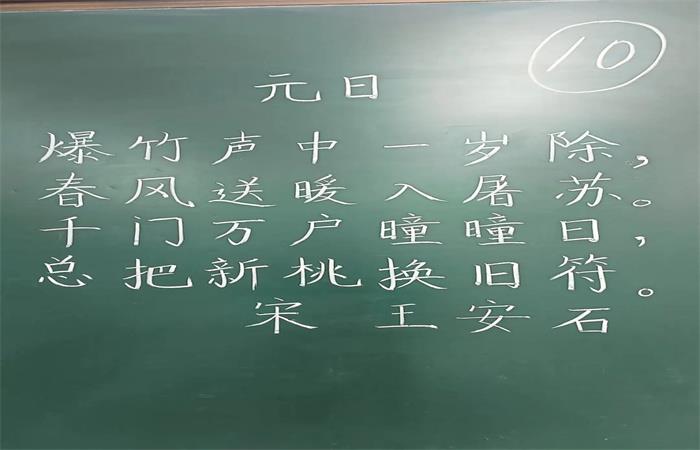 10
元日
爆竹声中一岁除,
春风送暖入屠苏。
千门万户曈曈日,
总把新桃换旧符。
宋 王安石